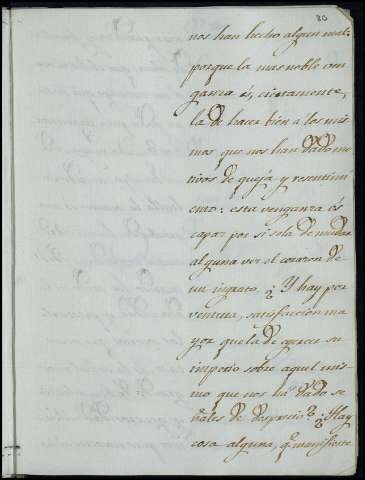 80
nos han hecho algun mal:
porque la mas noble ven
ganza és, ciertamente,
la de hacer bién a los mis
mos que nos han dado mo
tivos de queja y resentimi
ento: esta venganza és
capaz por sí sola de mudar
alguna vez el corazon de
un ingrato. ¿Y hay por
ventura, satisfaccion ma
yor que la de egercer su
imperio sobre aquel mis
mo que nos há dado se
ñales de desprecio? ¿Hay
cosa alguna, q.e manifieste